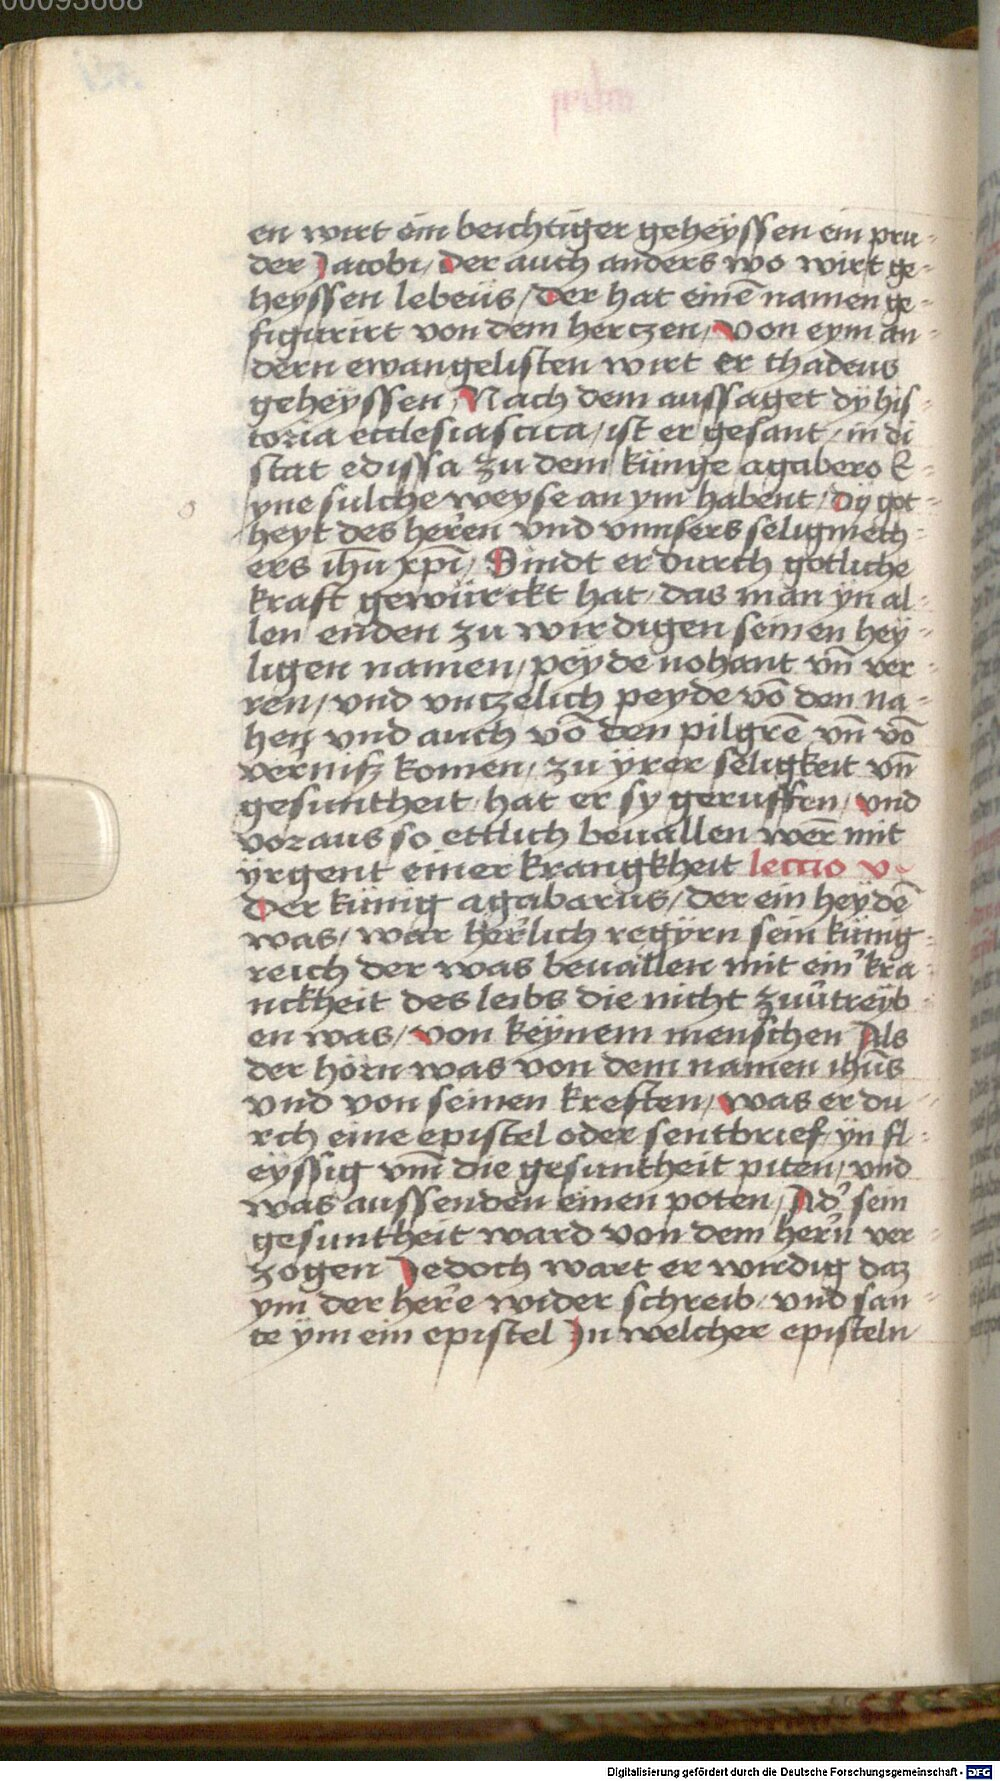 00093668
en wirt ein beichtiger geheÿssen ein pru-
der Jacobi, der auch anders wo wirt ge-
heyssen lebeüs, der hat einē namen ge-
figurirt von dem hertzen, von eym an-
dern ewangelisten wirt er thadeus
geheÿssen, Nach dem aussaget dÿ his-
toria ecclesiastica, ist er gesant, in di
stat edissa zu dem künige agabero
yne sulche weyse an ym habent, dÿ got-
heyt des herren vnd vnnsers seligmech-
ers ih̄u xp̄i, Sindt er durch gotliche
kraft gewürckt hat, das man ÿn al-
len enden zu wirdigen seinen heÿ-
ligen namen, peÿde nohant vn̄ ver-
ren, vnd vntzelich peyde vō den na-
hen vnd auch vō den pilgrē vn̄ vō
vernisz komen, zu ÿrer seligkeit vn̄
gesuntheit, hat er sy geruffen, vnd
voraus so ettlich beuallen wer̄ mit
ÿrgent einer krangkheit lectio v
der künig agabarus, der ein heÿdē
was, war herlich regÿrn sein künig-
reich der was beuallen mit ein' kra-
nckheit des leibs die nicht zuu'treÿb-
en was, von keÿnem menschen Als
der hörn was von dem namen ih̄us
vnd von seinen kreften, was er du-
rch eine epistel oder sentbrief ÿn fl-
eÿssig vm̄ die gesuntheit piten, vnd
was aussenden einen poten, Ad' sein
gesuntheit ward von dem her'n ver-
zogen Jedoch wart er wirdig daz
ym der her'e wider schreib, vnd san-
te ÿm ein epistel In welcher episteln
Digitalisierung gefördert durch die Deutsche Forschungsgemeinschaft - DFG